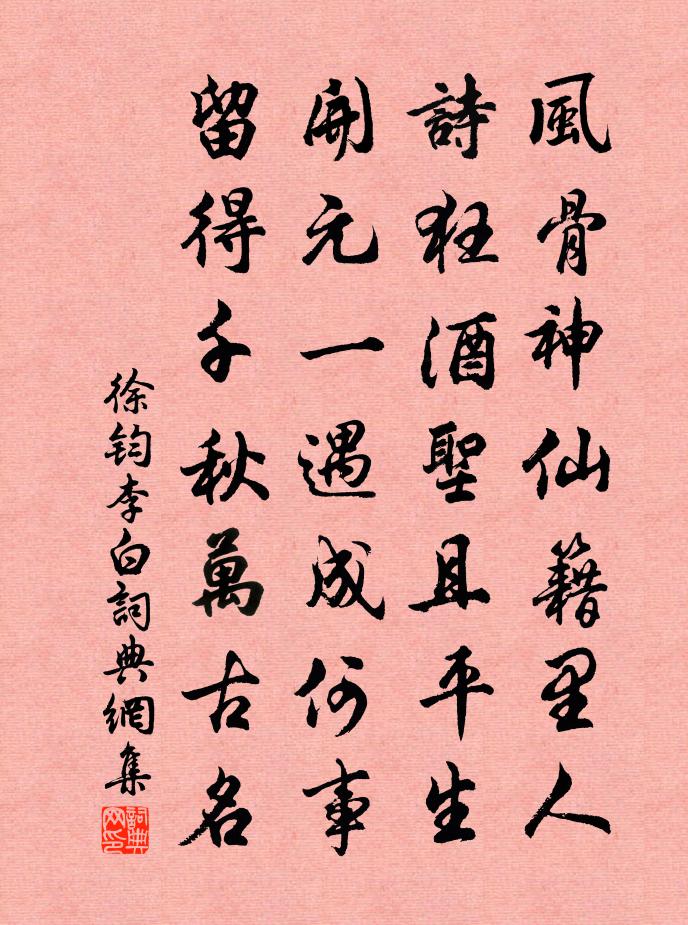 風骨神仙籍里人
詩狂酒聖且平生
開元一遇成何事
留得千秋萬古名
徐鈞李白詞典網集
詞典网印